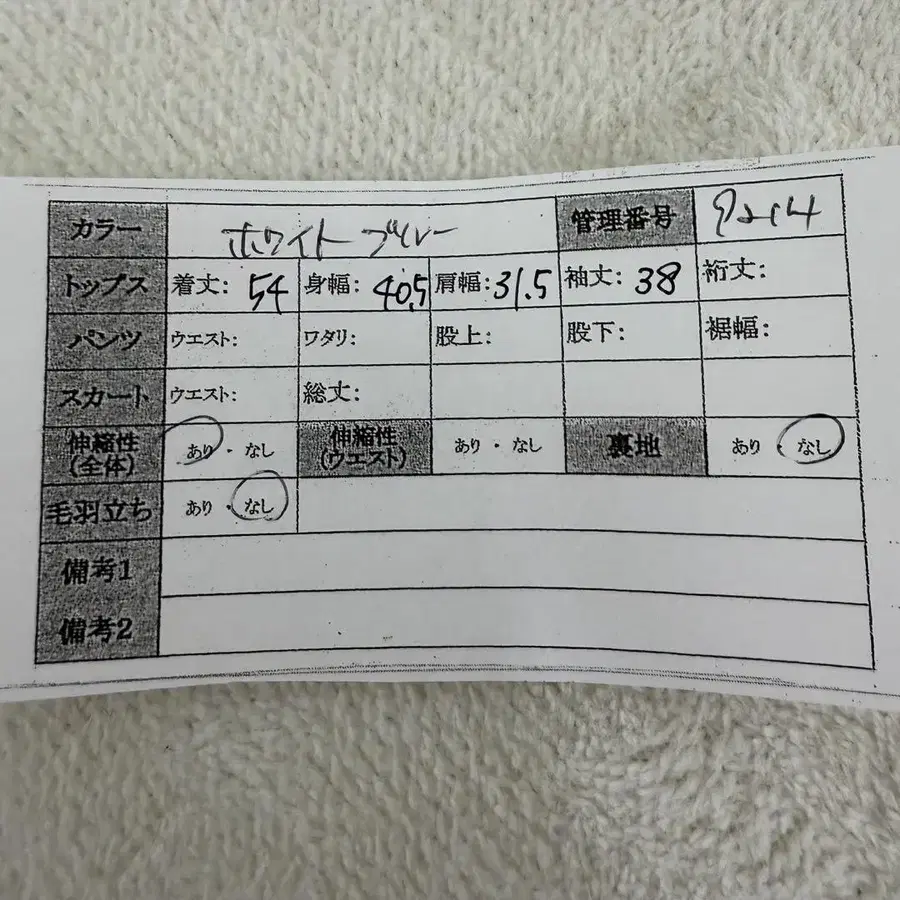 カラー ホワイト ブルー 管理番号
トップス 着丈: 54 身幅: 40.5 肩幅: 31.5 袖丈: 38 裄丈:
パンツ ウエスト: ワタリ: 股上: 股下: 裾幅:
スカート ウエスト: 総丈:
伸縮性(全体) あり・なし 伸縮性(ウエスト) あり・なし 裏地 あり・なし
毛羽立ち あり・なし
備考1
備考2